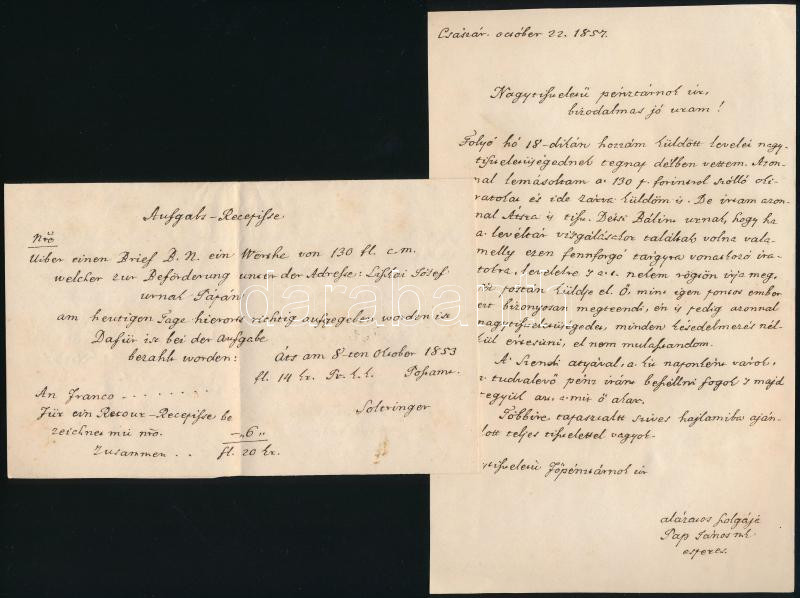 Aufgabs-Recepisse.
Nro
Uiber einen Brief D. N. ein Werthe von 130 fl. c.m.
welcher zur Beförderung unter der Adresse: József
urnak Pápán
am heutigen Tage hierorts richtig aufgegeben worden ist
Dafür ist bei der Aufgabe
bezahlt worden: Áts am 8ten October 1853
fl. 14 kr.
An Franco . . . . . . . .
Für ein Retour-Recepisse be
zeichnet mit nro. —„6„
Zusammen . . fl. 20 kr.
Soltringer
Császár. october 22. 1857.
Nagytiszteletü pénztárnok úr,
bizodalmas jó uram!
Folyó hó 18-dikán hozzám küldött levelét nagy-
tiszteletüségednek tegnap délben vettem. Azon-
nal lemásoltam a 130 p. forintrol szólló oki-
ratolat és ide zárva küldöm is. De irtam azon-
nal Átsra is tiszt. Bálint urnak, hogy ha
a levéltár vizsgálásakor találtak volna vala-
melly ezen fennforgó tárgyra vonatkozó ira-
tokra, levelekre nekem rögtön irja meg,
postán küldje el. Ő, mint igen pontos ember
ezt bizonyosan megteendi, én is pedig azonnal
nagytiszteletüségedet, minden késedelmezés nél-
kül értesiteni, el nem mulasztandom.
A Szendi atyával, a ki naponként várok,
a tudvalevő pénz iránt beszéllni fogok s majd
együtt
Többire tapasztalt szives hajlamiba aján-
lott teljes tisztelettel vagyok.
Főpénztárnok úr
alázatos szolgája
Pap János mk
esperes.
darabanth